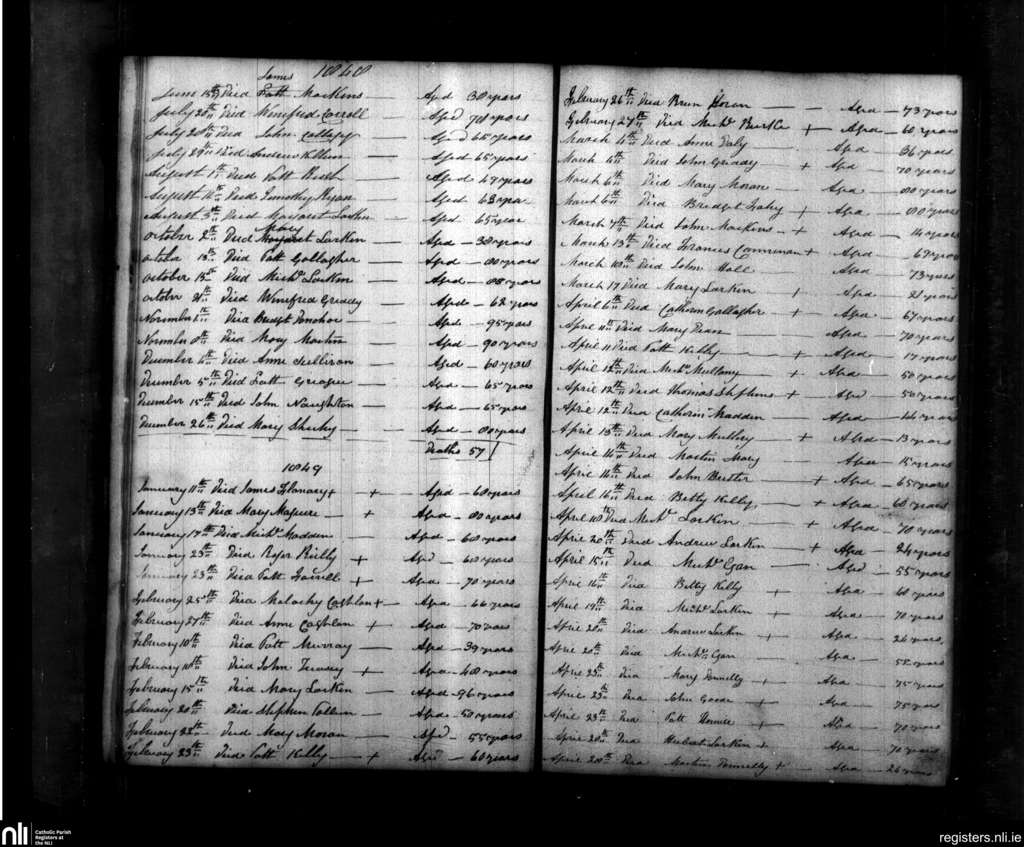 1848
James
June 15th Died Patt Mackins — Aged 30 years
July 20th Died Winefred Carroll — Aged 70 years
July 20th Died John — Aged 65 years
July 29th Died Andrew — Aged 65 years
August 1st Died Patt — Aged 49 years
August Died Timothy — Aged 63 years
August 3rd Died Margaret Larkin — Aged 65 years
Mary
October 2nd Died Margaret Larkin — Aged — 30 years
October 13th Died Patt Gallagher — Aged — 80 years
October 15th Died Michl Larkin — Aged — years
October 21st Died Winefred Greedy — Aged — 62 years
November 1st Died Bridget Donohoe — Aged — 95 years
November 8th Died Mary Martin — Aged — 90 years
December 4th Died Anne Sullivan — Aged — 60 years
December 5th Died Patt — Aged — 65 years
December 15th Died John Naughton — Aged — 65 years
December 26th Died Mary Sheehy — Aged — 80 years
Deaths 57
1849
January 11th Died James Flanary + — + — Aged — 60 years
January 13th Died Mary Maguire — + — Aged — 80 years
January 17th Died Michl Madden — Aged — 60 years
January 23rd Died Roger Reilly — + — Aged — 60 years
January 23rd Died Patt — + — Aged — 70 years
February 25th Died Malachy Coghlan + — Aged — 66 years
February 27th Died Anne Coghlan — + — Aged — 70 years
February 10th Died Patt Murray — Aged — 39 years
February 10th Died John — + — Aged — 48 years
February 15th Died Mary Larkin — Aged — 96 years
February 20th Died Stephen — Aged — 50 years
February 22nd Died Mary Moran — Aged — 55 years
February 23rd Died Patt Kelly — + — Aged — 60 years
February 26th Died Horan — Aged — 73 years
February 27th Died Michl Bourke — + — Aged — 60 years
March 4th Died Anne Daly — Aged — 36 years
March 4th Died John Greedy — + — Aged — 70 years
March 6th Died Mary Moran — Aged — 80 years
March 6th Died Bridget — + — Aged — 80 years
March 7th Died John Mackins — + — Aged — 14 years
March 13th Died Frances + — Aged — 67 years
March 10th Died John Hall — Aged — 73 years
March 17 Died Mary Larkin — + — Aged — 21 years
April 6th Died Catherin Gallagher — + — Aged — 67 years
April 11th Died Mary — Aged — 70 years
April 11 Died Patt Kelly — + — Aged — 17 years
April 12th Died Michl Mullany — + — Aged — 50 years
April 12th Died Thomas Stephens — + — Aged — 50 years
April 12th Died Catherin Madden — Aged — 44 years
April 13th Died Mary — + — Aged — 13 years
April 14th Died Martin — Aged — 15 years
April 14th Died John — + — Aged — 65 years
April 16th Died Betty Kelly — + — Aged — 60 years
April 18th Died Michl Larkin — Aged — 70 years
April 20th Died Andrew Larkin — + — Aged — 24 years
April 15th Died Michl Egan — Aged — 55 years
April 16th Died Betty Kelly — + — Aged — 60 years
April 19th Died Michl Larkin — + — Aged — 70 years
April 20th Died Andrew Larkin — + — Aged — 24 years
April 20th Died Michl Egan — Aged — 52 years
April 23rd Died Mary Donnelly — + — Aged — 75 years
April 23rd Died John — + — Aged — 75 years
April 23rd Died Patt — + — Aged — 70 years
April 20th Died Hubert Larkin + — Aged — 70 years
April 20th Died Martin Donnelly + — Aged — 26 years
nli
Catholic Parish
Registers at
the NLI
registers.nli.ie